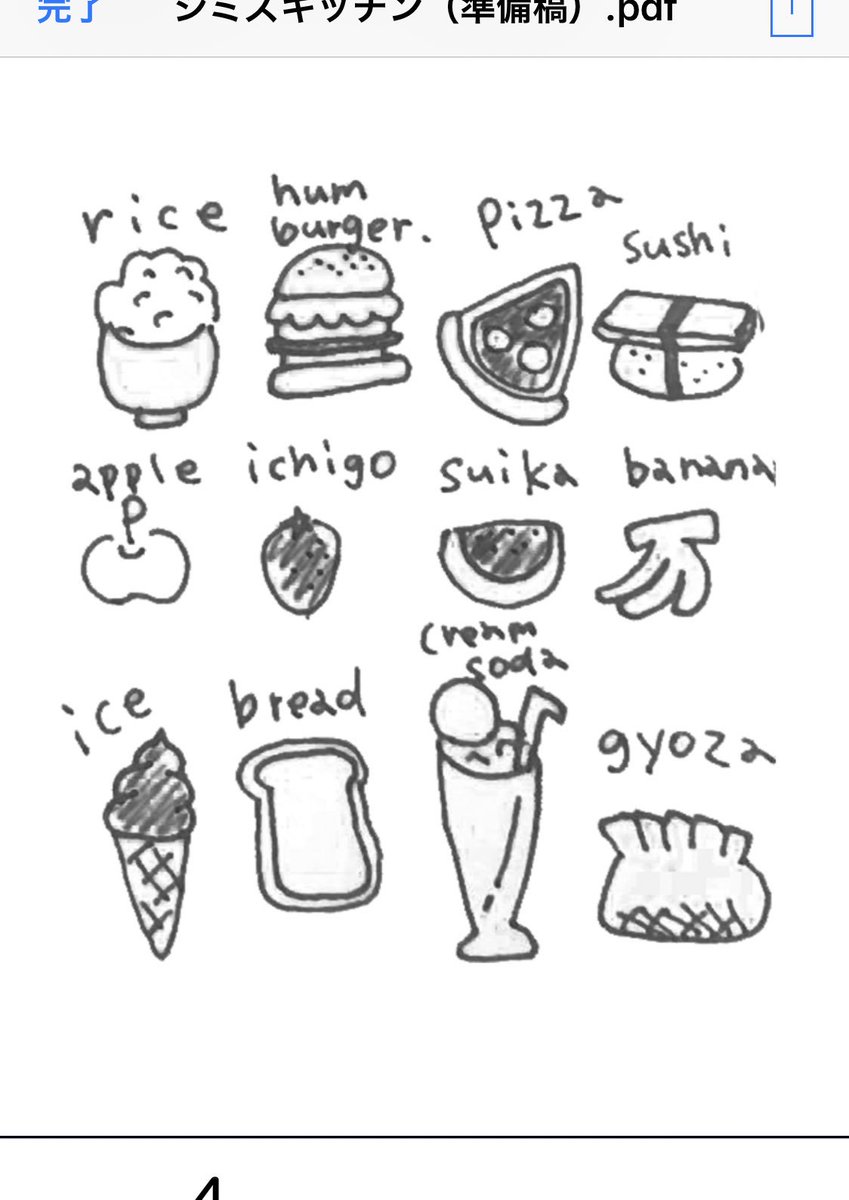 完了 シミズキッチン（準備稿）.pdf
rice
hum
burger.
pizza
sushi
apple
ichigo
suika
banana
ice
bread
cream
soda
gyoza
4